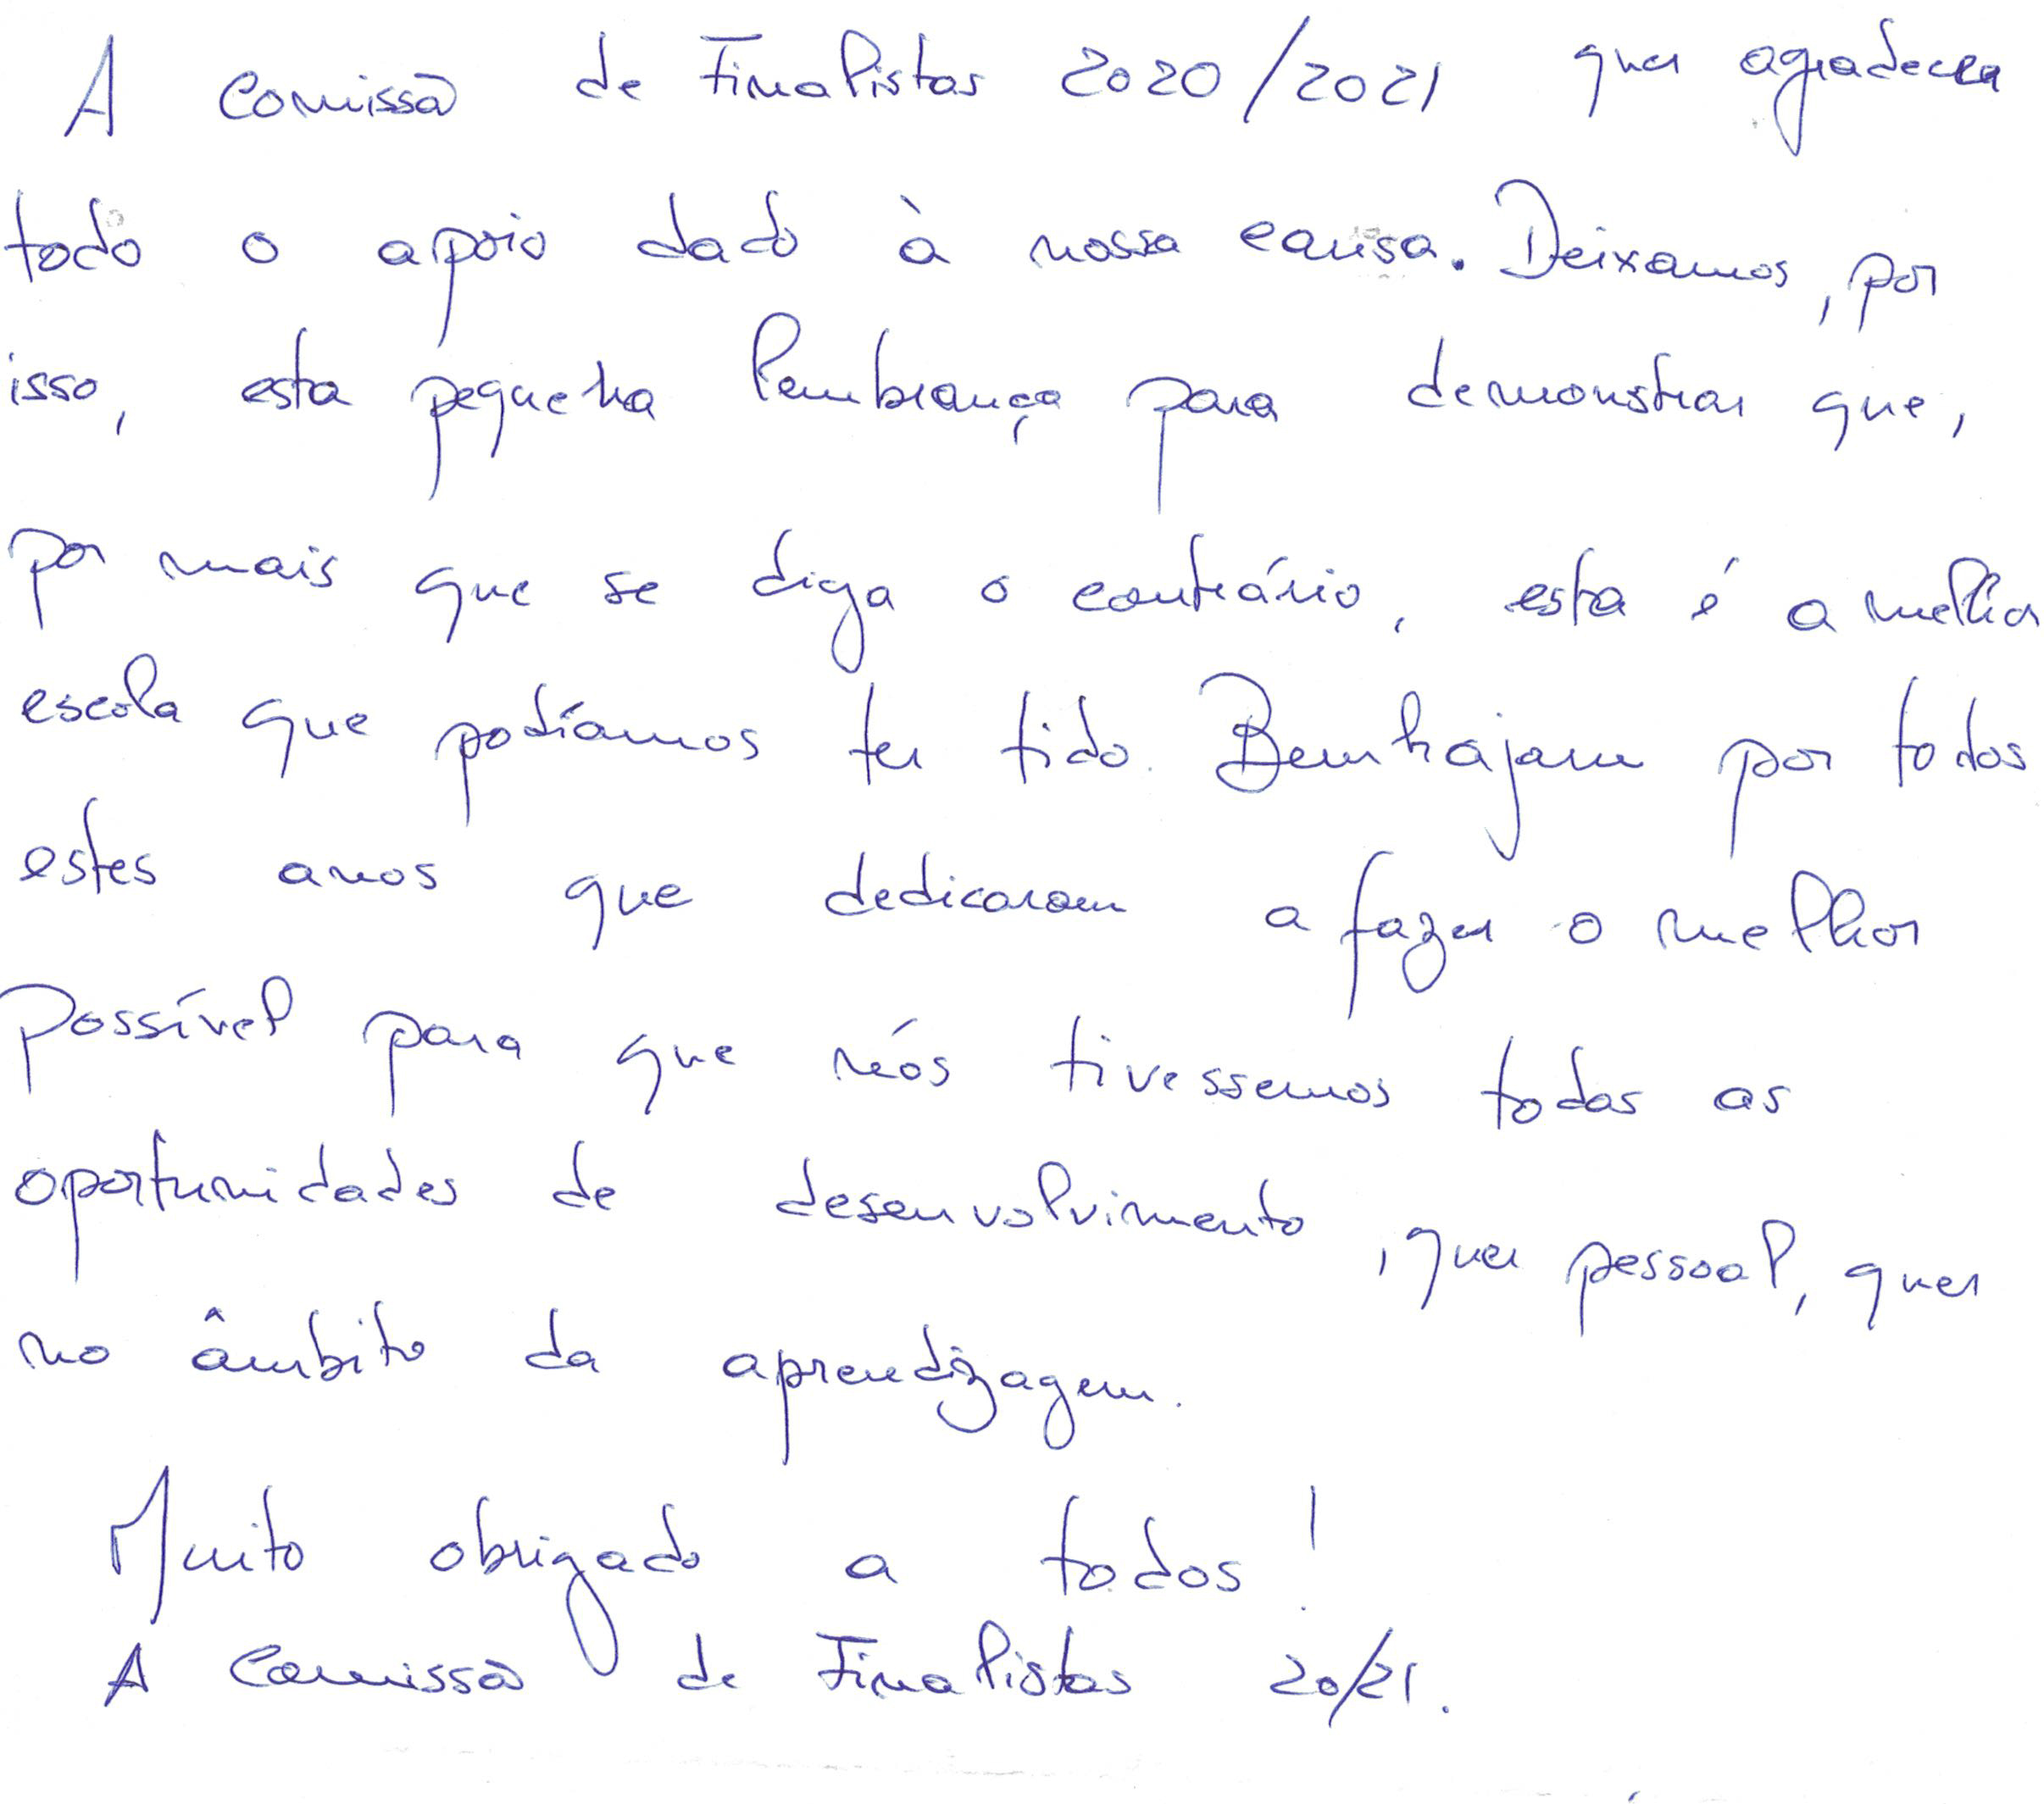 A Comissão de Finalistas 2020/2021 quer agradecer
todo o apoio dado à nossa causa. Deixamos, por
isso, esta pequena lembrança para demonstrar que,
por mais que se diga o contrário, esta é a melhor
escola que podíamos ter tido. Bem hajam por todos
estes anos que dedicaram a fazer o melhor
possível para que nós tivessemos todas as
oportunidades de desenvolvimento, quer pessoal, quer
no âmbito da aprendizagem.
Muito obrigado a todos!
A Comissão de Finalistas 20/21.